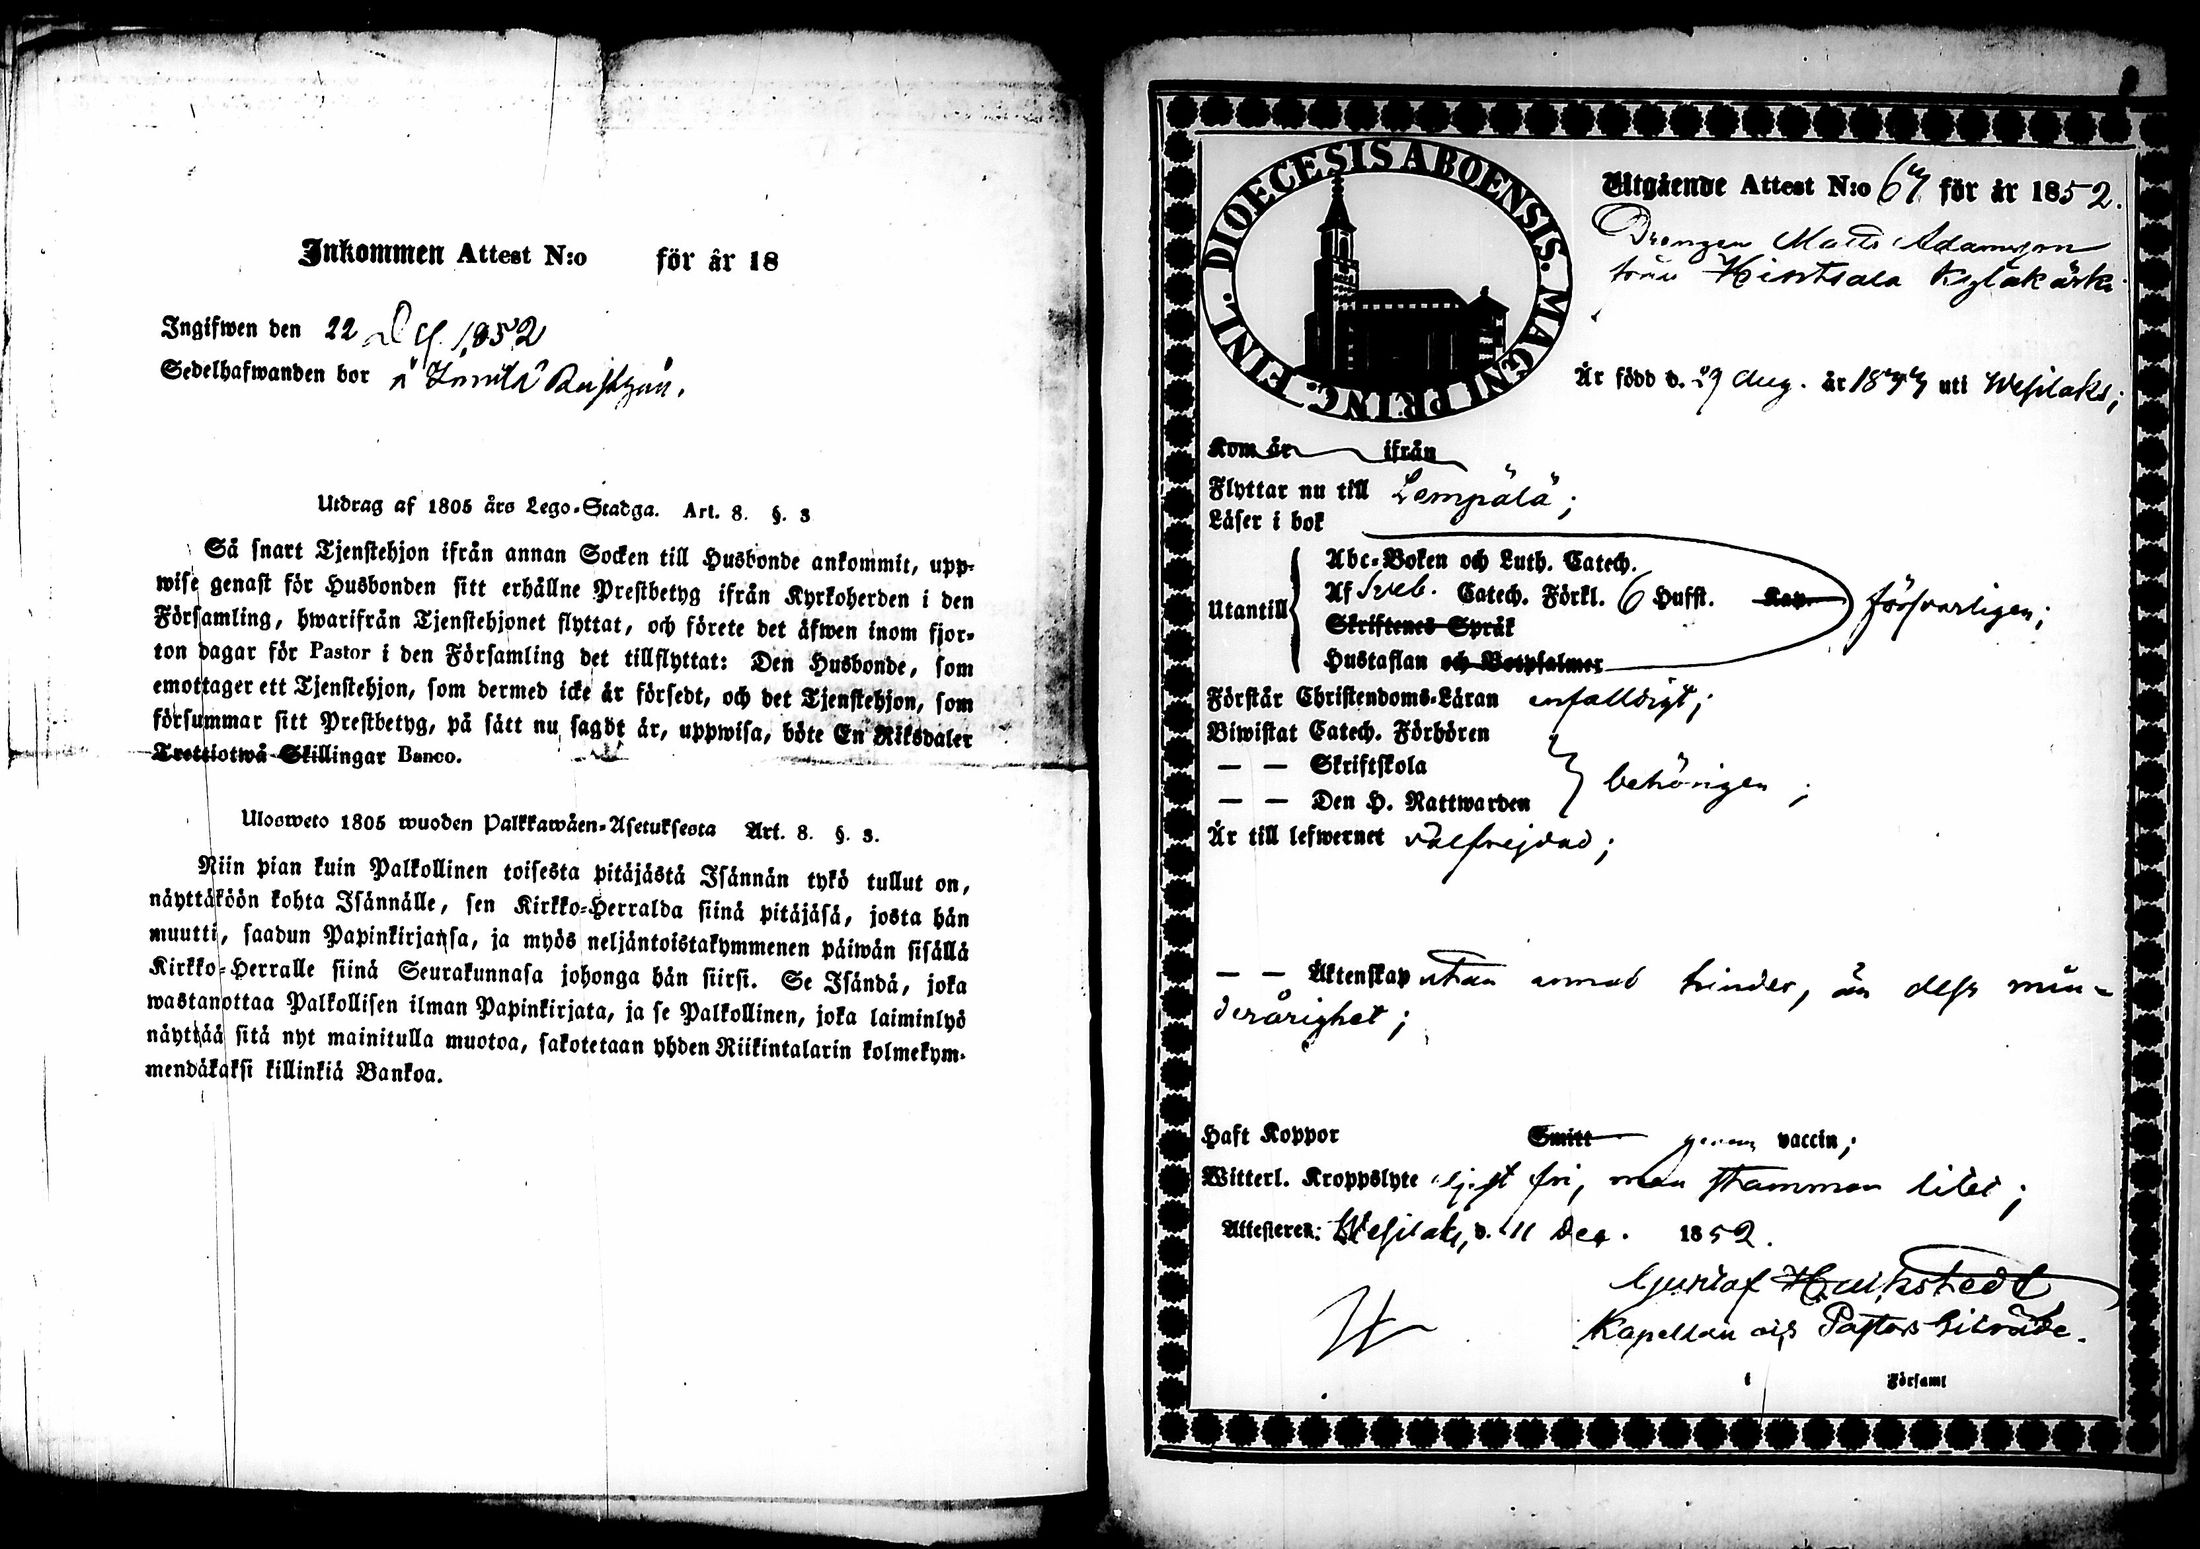 Inkommen Attest N:o för år 18
Ingifwen den 22 1852
Sedelhafwanden bor
Utdrag af 1805 års Lego-Stadga. Art. 8. §. 3
Så snart Tjenstehjon ifrån annan Socken till Husbonde ankommit, upp-
wise genast för Husbonden sitt erhållne Prestbetyg ifrån Kyrkoherden i den
Församling, hwarifrån Tjenstehjonet flyttat, och förete det äfwen inom fjor-
ton dagar för Pastor i den Församling det tillflyttat: Den Husbonde, som
emottager ett Tjenstehjon, som dermed icke är försedt, och det Tjenstehjon, som
försummar sitt Prestbetyg, på sätt nu sagdt är, uppwisa, böte En Riksdaler
Trettiotwå Skillingar Banco.
Ulosweto 1805 wuoden Palkkawäen-Asetuksesta Art. 8. §. 3.
Niin pian kuin Palkollinen toisesta pitäjästä Isännän tykö tullut on,
näyttäköön kohta Isännälle, sen Kirkko-Herralda siinä pitäjäsä, josta hän
muutti, saadun Papinkirjansa, ja myös neljäntoistakymmenen päiwän sisällä
Kirkko-Herralle siinä Seurakunnasa johonga hän siirsi. Se Isändä, joka
wastanottaa Palkollisen ilman Papinkirjata, ja se Palkollinen, joka laiminlyö
näyttää sitä nyt mainitulla muotoa, sakotetaan yhden Riikintalarin kolmekym-
mendäkaksi killinkiä Bankoa.
DIOECESIS ABOENSIS. MAGNI PRINC. FINL.
Utgående Attest N:o 67 för år 1852.
Drengen Matts Adamsson
från Hirstsala
Är född d. 29 Aug. år uti Wesilaks;
Kom år ifrån
Flyttar nu till Lempälä;
Läser i bok
Utantill
Abc-Boken och Luth. Catech.
Af Sveb. Catech. Förkl. 6 Hufst. Kap.
Skriftenes Språk
Hustaflan och Botpsalmer
försvarligen;
Förstår Christendoms-Läran enfalldigt;
Biwistat Catech. Förhören
— — Skriftskola
— — Den H. Nattwarden
behörigen;
Är till lefwernet välfrejdad;
— — Äktenskap utan annat hinder, än dess min-
derårighet;
Haft Koppor Smitt genom vaccin;
Witterl. Kroppslyte fri, men stammar litet;
Attesteres: Wesilaks, d. 11 Dec. 1852.
Gustaf
Kapellan och Pastors biträde.
i Församl